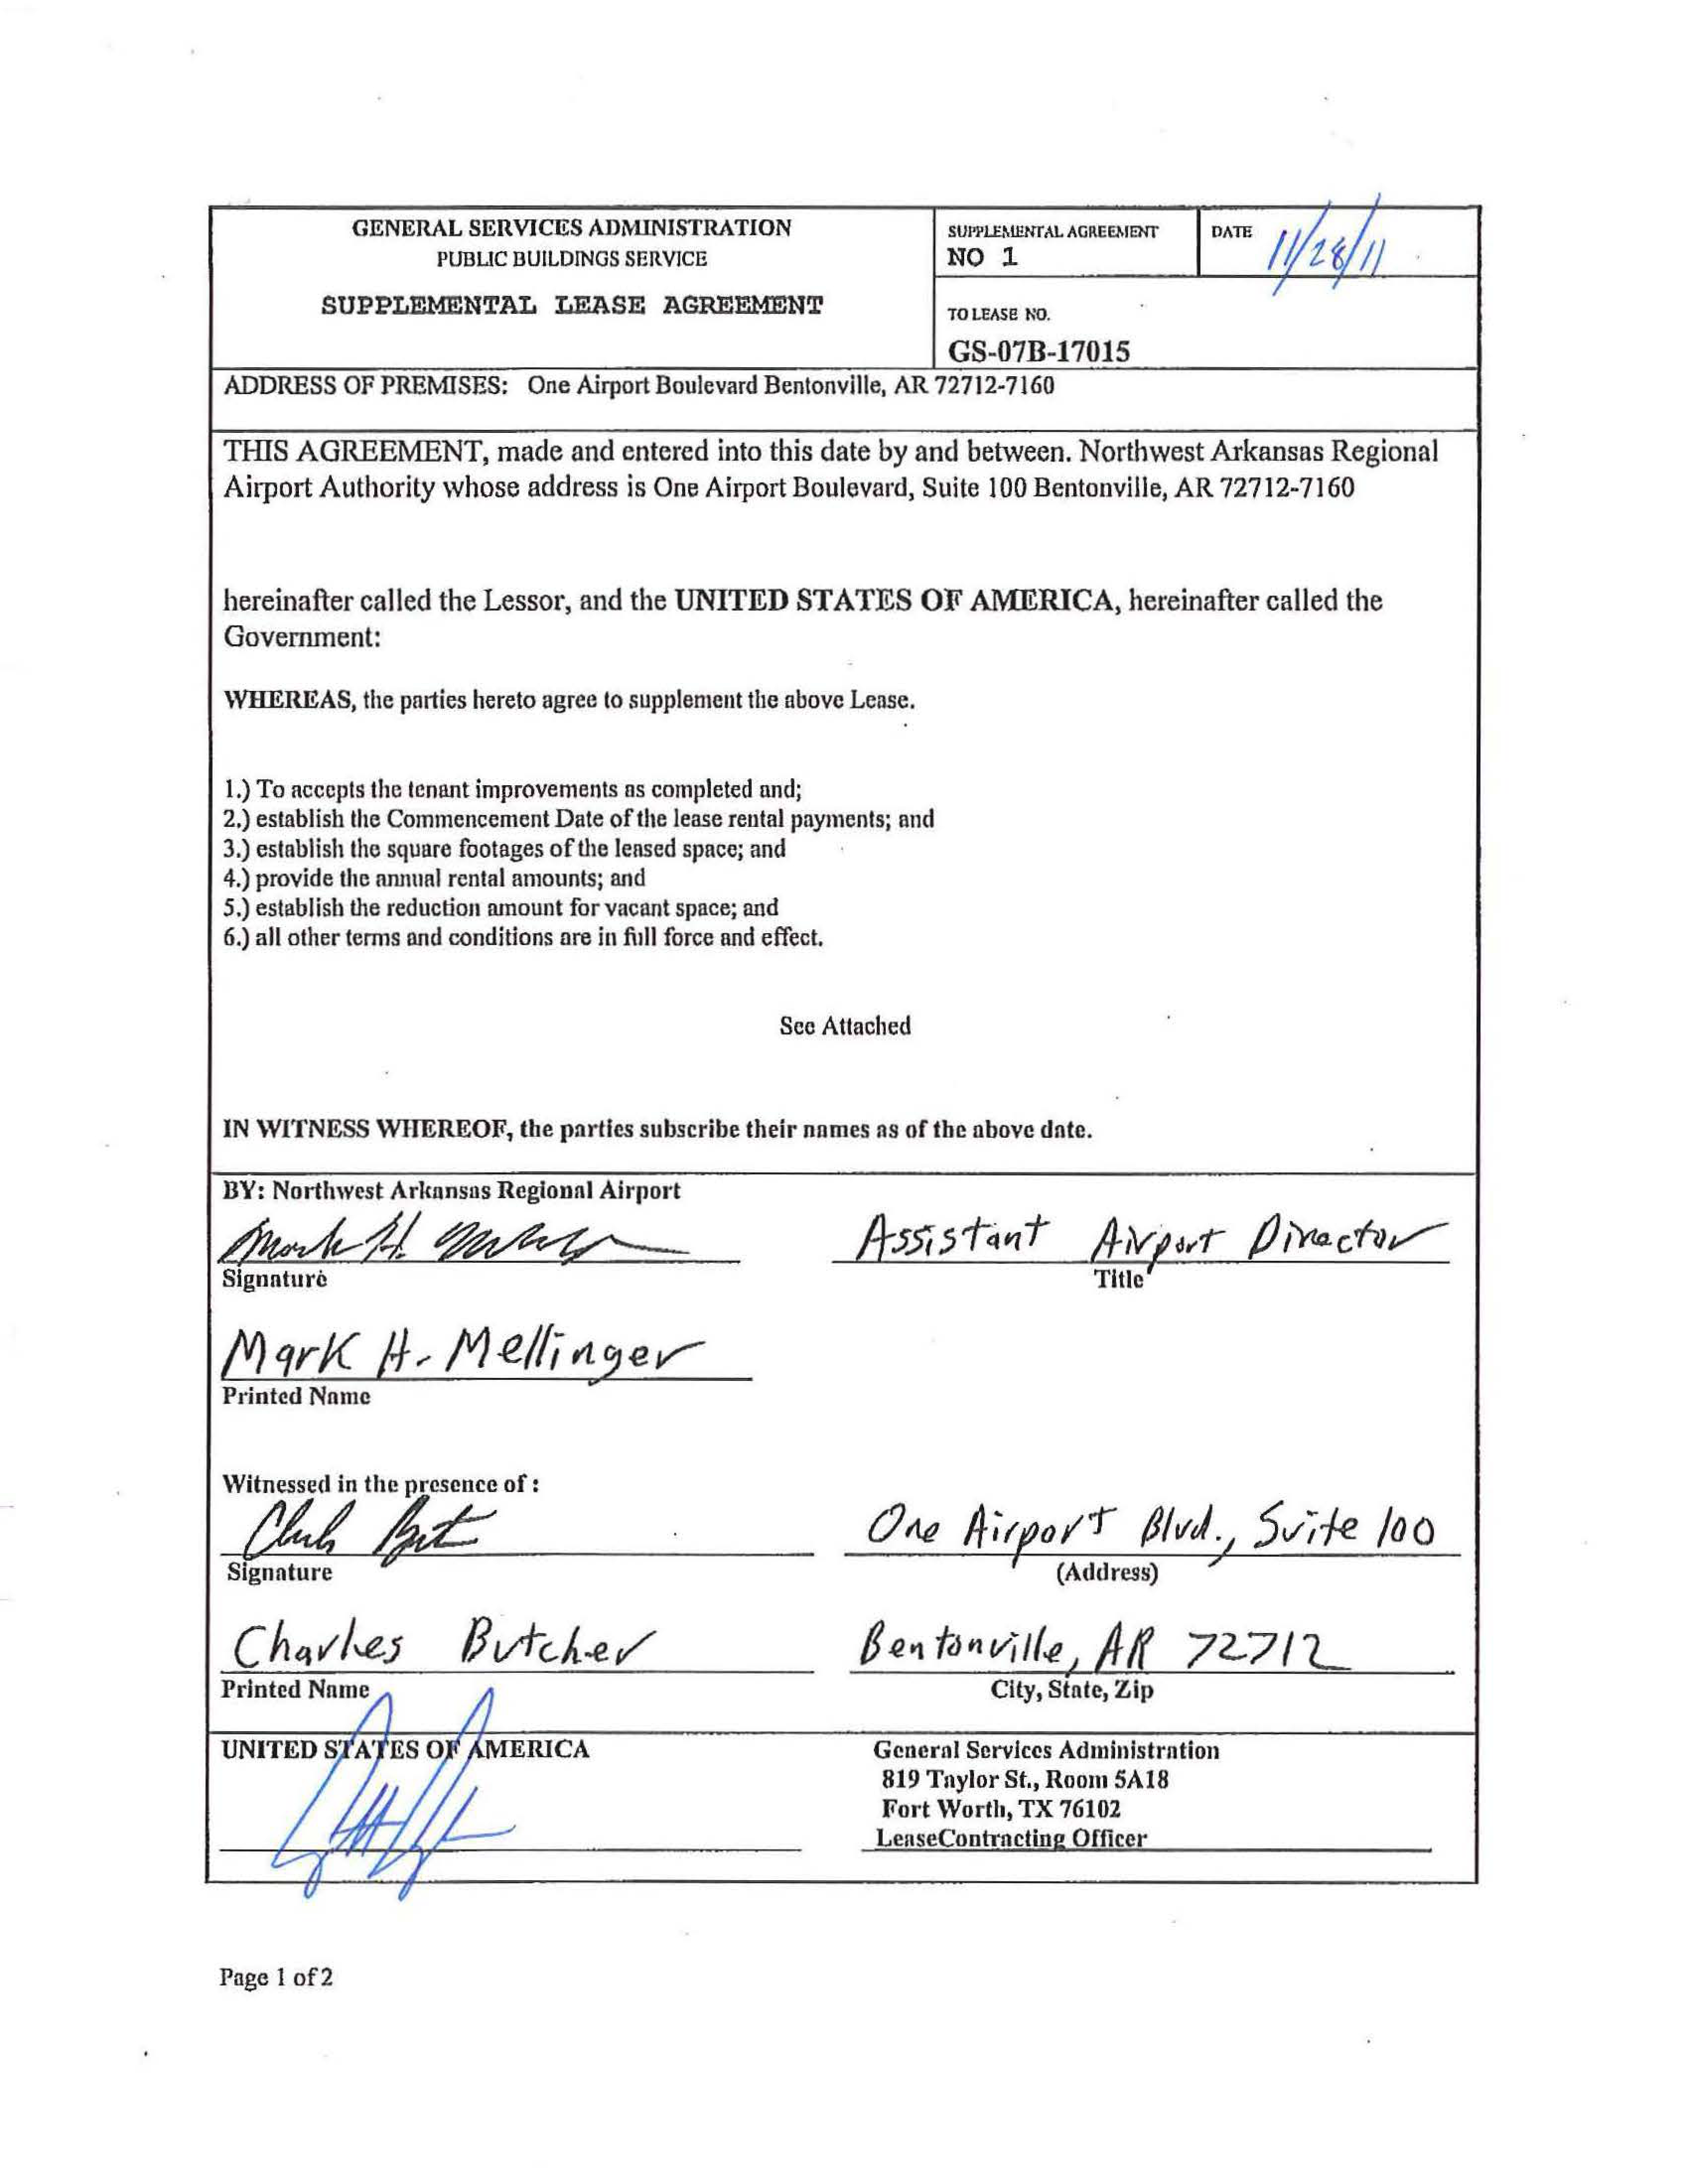 GENERAL SERVICES ADMINISTRATION
PUBLIC BUILDINGS SERVICE
SUPPLEMENTAL LEASE AGREEMENT
SUPPLEMENTAL AGREEMENT
NO 1
DATE 11/28/11
TO LEASE NO.
GS-07B-17015
ADDRESS OF PREMISES: One Airport Boulevard Bentonville, AR 72712-7160
THIS AGREEMENT, made and entered into this date by and between. Northwest Arkansas Regional
Airport Authority whose address is One Airport Boulevard, Suite 100 Bentonville, AR 72712-7160
hereinafter called the Lessor, and the UNITED STATES OF AMERICA, hereinafter called the
Government:
WHEREAS, the parties hereto agree to supplement the above Lease.
1.) To accepts the tenant improvements as completed and;
2.) establish the Commencement Date of the lease rental payments; and
3.) establish the square footages of the leased space; and
4.) provide the annual rental amounts; and
5.) establish the reduction amount for vacant space; and
6.) all other terms and conditions are in full force and effect.
See Attached
IN WITNESS WHEREOF, the parties subscribe their names as of the above date.
BY: Northwest Arkansas Regional Airport
Mark H.
Assistant Airport Director
Signature
Title
Mark H. Mellinger
Printed Name
Witnessed in the presence of :
One Airport Blvd., Suite 100
Signature
(Address)
Charles Butcher
Bentonville, AR 72712
Printed Name
City, State, Zip
UNITED STATES OF AMERICA
General Services Administration
819 Taylor St., Room 5A18
Fort Worth, TX 76102
LeaseContracting Officer
Page 1 of 2